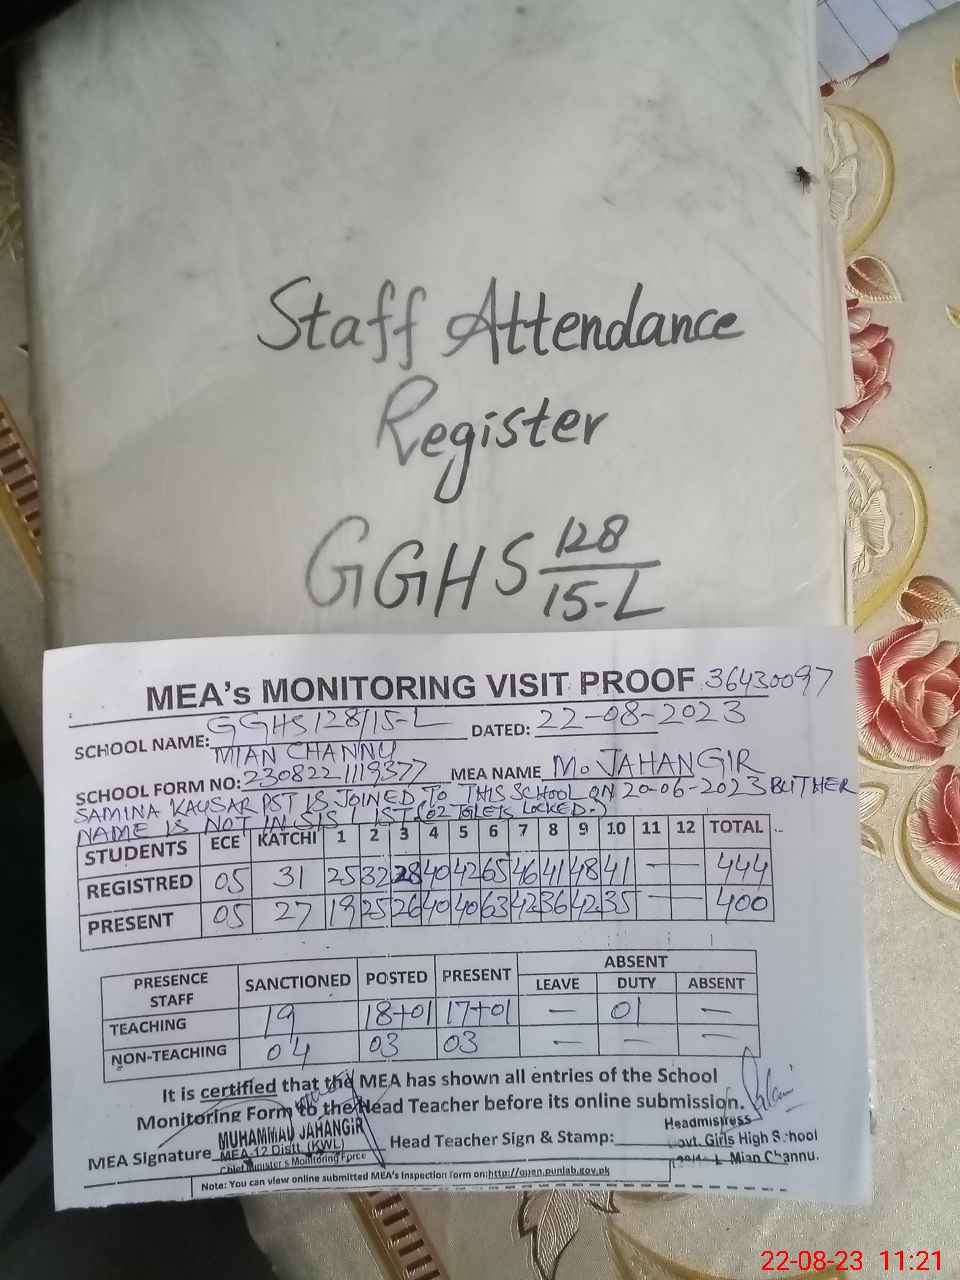 Staff Attendance
Register
GGHS 128/15-L
MEA's MONITORING VISIT PROOF 36430097
SCHOOL NAME: GGHS 128/15-L MIAN CHANNU DATED: 22-08-2023
SCHOOL FORM NO: 230822 1119377 MEA NAME Mo JAHANGIR
SAMINA KAUSAR PST IS JOINED TO THIS SCHOOL ON 20-06-2023 BUT HER
NAME IS NOT IN SIS LIST (02 LOCKED.)
STUDENTS ECE KATCHI 1 2 3 4 5 6 7 8 9 10 11 12 TOTAL
REGISTRED 05 31 25 32 28 40 42 65 46 41 48 41 — — 444
PRESENT 05 27 19 25 26 40 40 63 42 36 42 35 — — 400
PRESENCE STAFF SANCTIONED POSTED PRESENT ABSENT
LEAVE DUTY ABSENT
TEACHING 19 18+01 17+01 — 01 —
NON-TEACHING 04 03 03 — — —
It is certified that the MEA has shown all entries of the School
Monitoring Form to the Head Teacher before its online submission.
MEA Signature MUHAMMAD JAHANGIR
MEA-12 Distt (KWL)
Chief Minister's Monitoring Force
Head Teacher Sign & Stamp:
Headmistress
Govt. Girls High School
Mian Channu.
Note: You can view online submitted MEA's Inspection form on:http://open.punjab.gov.pk
22-08-23 11:21